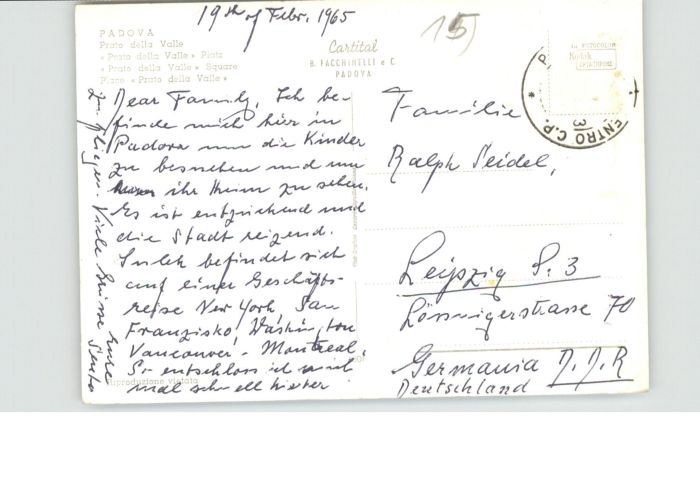 19th of Febr. 1965
15)
PADOVA
Prato della Valle
« Prato della Valle » Platz
« Prato della Valle » Square
Place « Prato della Valle »
Cartital
B. FACCHINELLI e C.
PADOVA
Kodak
CENTRO C.P.
Dear Family, Ich be-
finde mich hier in
Padova um die Kinder
zu besuchen und um
ihr Heim zu sehen.
Es ist entzückend und
die Stadt reizend.
befindet sich
auf einer Geschäfts-
reise New York, San
Franzisko, Washington
Vancouver - Montreal.
So entschloss ich mich
mal schnell hierher
zu fliegen. Viele Grüsse Eure Senta
Riproduzione vietata
Familie
Ralph Seidel,
Leipzig S. 3
Lössnigerstrasse 70
Germania D.D.R
Deutschland